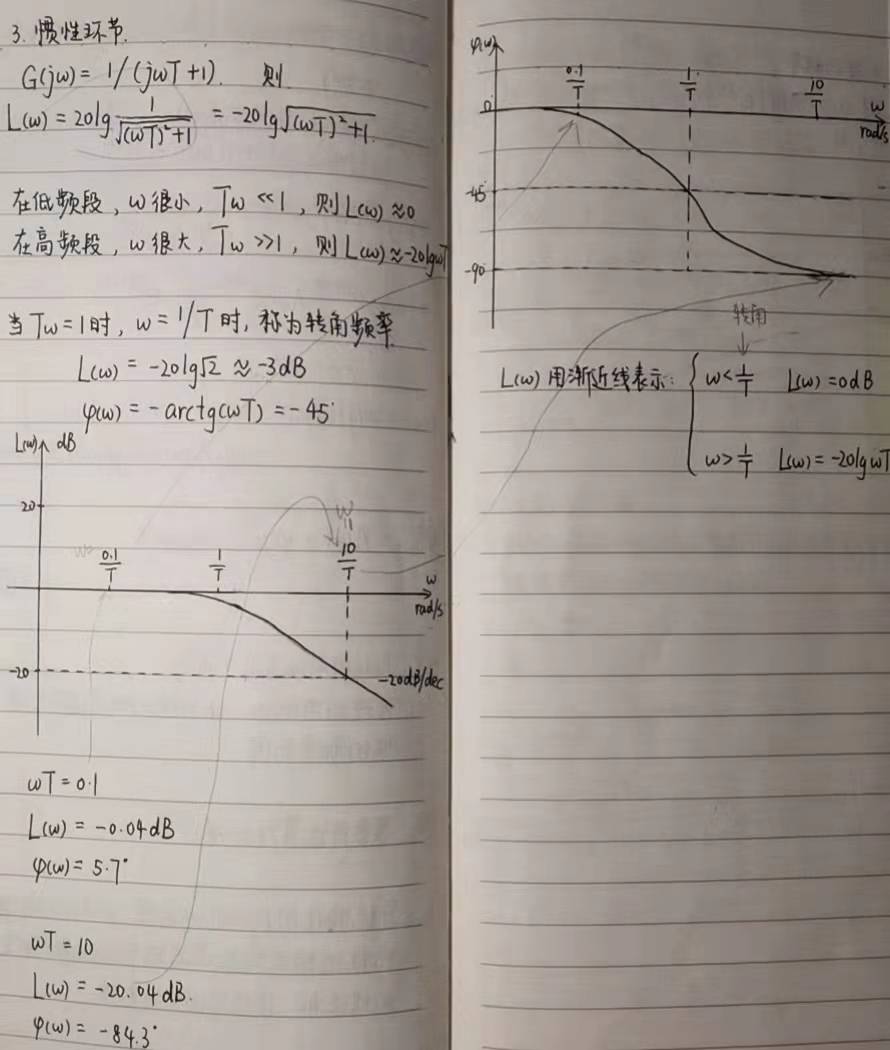 3. 惯性环节.
G(jω) = 1/(jωT+1). 则
L(ω) = 20lg 1/√((ωT)²+1) = -20lg√((ωT)²+1).
在低频段, ω很小, Tω <<1, 则L(ω)≈0
在高频段, ω很大, Tω >>1, 则L(ω)≈-20lgωT
当Tω=1时, ω=1/T时, 称为转角频率.
L(ω) = -20lg√2 ≈ -3dB
φ(ω) = -arctg(ωT) = -45°
L(ω) dB
20
ω=
0.1/T 1/T 10/T
ω
rad/s
-20
-20dB/dec
ωT = 0.1
L(ω) = -0.04dB
φ(ω) = 5.7°
ωT = 10
L(ω) = -20.04dB.
φ(ω) = -84.3°
φ(ω)
0.1/T 1/T 10/T
0 ω
rad/s
-45
-90
转角
L(ω)用渐近线表示: { ω<1/T L(ω)=0dB
ω>1/T L(ω)=-20lgωT